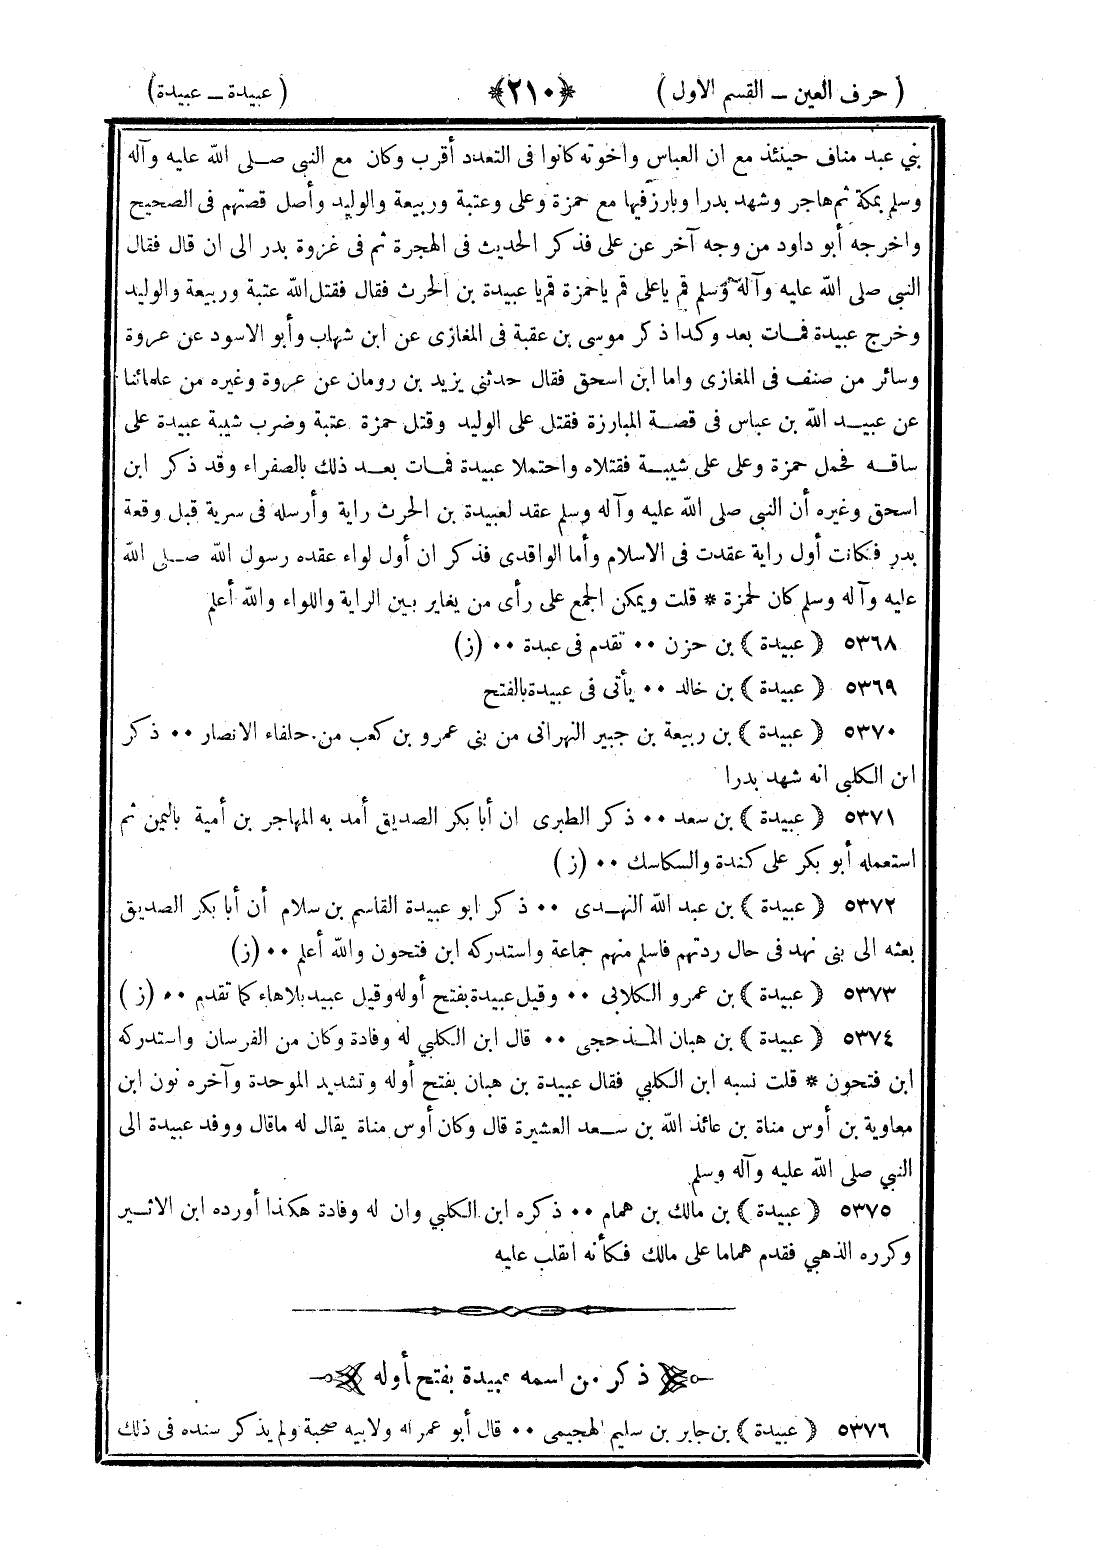 ( حرف العين – القسم الاول ) ﴿٢١٠﴾ ( عبيدة – عبيدة )
بني عبد مناف حينئذ مع ان العباس واخوته كانوا فى التعدد أقرب وكان مع النبى صلى الله عليه وآله
وسلم بمكة ثم هاجر وشهد بدرا وبارز فيها مع حمزة وعلى وعتبة وربيعة والوليد وأصل قصتهم فى الصحيح
واخرجه أبو داود من وجه آخر عن على فذكر الحديث فى الهجرة ثم فى غزوة بدر الى ان قال فقال
النبى صلى الله عليه وآله وسلم قم ياعلى قم ياحمزة قم يا عبيدة بن الحرث فقال فقتل الله عتبة وربيعة والوليد
وخرج عبيدة فمات بعد وكذا ذكر موسى بن عقبة فى المغازى عن ابن شهاب وأبو الاسود عن عروة
وسائر من صنف فى المغازى واما ابن اسحق فقال حدثنى يزيد بن رومان عن عروة وغيره من علمائنا
عن عبيد الله بن عباس فى قصة المبارزة فقتل على الوليد وقتل حمزة عتبة وضرب شيبة عبيدة على
ساقه فحمل حمزة وعلى على شيبة فقتلاه واحتملا عبيدة فمات بعد ذلك بالصفراء وقد ذكر ابن
اسحق وغيره أن النبى صلى الله عليه وآله وسلم عقد لعبيدة بن الحرث راية وأرسله فى سرية قبل وقعة
بدر فكانت أول راية عقدت فى الاسلام وأما الواقدى فذكر ان أول لواء عقده رسول الله صلى الله
عليه وآله وسلم كان لحمزة * قلت ويمكن الجمع على رأى من يغاير بين الراية واللواء والله أعلم
٥٣٦٨ ﴿ عبيدة ﴾ بن حزن ٠٠ تقدم فى عبدة ٠٠ (ز)
٥٣٦٩ ﴿ عبيدة ﴾ بن خالد ٠٠ يأتى فى عبيدة بالفتح
٥٣٧٠ ﴿ عبيدة ﴾ بن ربيعة بن جبير النهرانى من بني عمرو بن كعب من حلفاء الانصار ٠٠ ذكر
ابن الكلبى انه شهد بدرا
٥٣٧١ ﴿ عبيدة ﴾ بن سعد ٠٠ ذكر الطبرى ان أبا بكر الصديق أمد به المهاجر بن أمية باليمن ثم
استعمله أبو بكر على كندة والسكاسك ٠٠ (ز)
٥٣٧٢ ﴿ عبيدة ﴾ بن عبد الله النهدى ٠٠ ذكر ابو عبيدة القاسم بن سلام أن أبا بكر الصديق
بعثه الى بنى نهد فى حال ردتهم فاسلم منهم جماعة واستدركه ابن فتحون والله أعلم ٠٠ (ز)
٥٣٧٣ ﴿ عبيدة ﴾ بن عمرو الكلابى ٠٠ وقيل عبيدة بفتح أوله وقيل عبيد بلاهاء كما تقدم ٠٠ (ز)
٥٣٧٤ ﴿ عبيدة ﴾ بن هبان المذحجى ٠٠ قال ابن الكلبي له وفادة وكان من الفرسان واستدركه
ابن فتحون * قلت نسبه ابن الكلبي فقال عبيدة بن هبان بفتح أوله وتشديد الموحدة وآخره نون ابن
معاوية بن أوس مناة بن عائذ الله بن سعد العشيرة قال وكان أوس مناة يقال له ماقال ووفد عبيدة الى
النبي صلى الله عليه وآله وسلم
٥٣٧٥ ﴿ عبيدة ﴾ بن مالك بن همام ٠٠ ذكره ابن الكلبي وان له وفادة هكذا أورده ابن الاثير
وكرره الذهبي فقدم هماما على مالك فكأنه انقلب عليه
ذكر من اسمه عبيدة بفتح أوله
٥٣٧٦ ﴿ عبيدة ﴾ بن جابر بن سليم الهجيمى ٠٠ قال أبو عمر له ولابيه صحبة ولم يذكر سنده فى ذلك